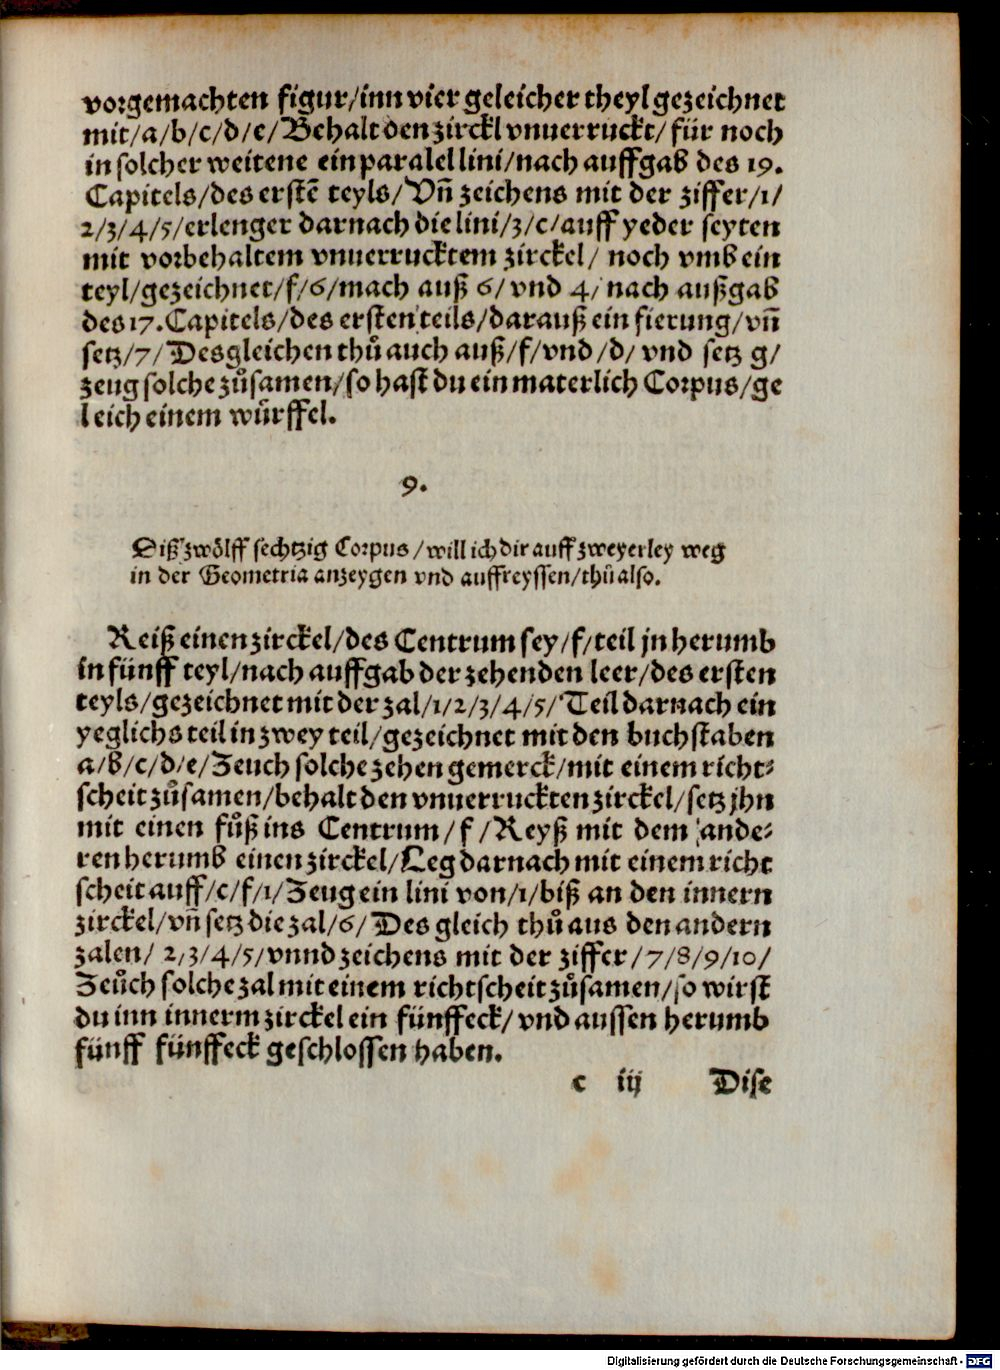 vorgemachten figur/inn vier geleicher theyl gezeichnet
mit/a/b/c/d/e/Behalt den zirckl vnuerruckt/für noch
in solcher weitene ein paralel lini/nach auffgab des 19.
Capitels/des erstē teyls/Vñ zeichens mit der ziffer/1/
2/3/4/5/erlenger darnach die lini/3/c/auff yeder seyten
mit vorbehaltem vnuerrucktem zirckel/ noch vmb ein
teyl/gezeichnet/f/6/mach auß 6/ vnd 4/ nach außgab
des 17. Capitels/des ersten teils/darauß ein fierung/vñ
setz/7/Desgleichen thů auch auß/f/vnd/d/ vnd setz g/
zeug solche zůsamen/so hast du ein materlich Corpus/ge
leich einem würffel.
9.
Diß zwölff sechtzig Corpus/will ich dir auff zweyerley weg
in der Geometria anzeygen vnd auffreyssen/thů also.
Reiß einen zirckel/des Centrum sey/f/teil jn herumb
in fünff teyl/nach auffgab der zehenden leer/des ersten
teyls/gezeichnet mit der zal/1/2/3/4/5/Teil darnach ein
yeglichs teil in zwey teil/gezeichnet mit den buchstaben
a/b/c/d/e/Zeuch solche zehen gemerck/mit einem richt⸗
scheit zůsamen/behalt den vnuerruckten zirckel/setz jhn
mit einen fůß ins Centrum/f/Reyß mit dem ande⸗
ren herumb einen zirckel/Leg darnach mit einem richt
scheit auff/c/f/1/Zeug ein lini von/1/biß an den innern
zirckel/vñ setz die zal/6/Des gleich thů aus den andern
zalen/ 2/3/4/5/vnnd zeichens mit der ziffer/7/8/9/10/
Zeůch solche zal mit einem richtscheit zůsamen/so wirst
du inn innerm zirckel ein fünffeck/vnd aussen herumb
fünff fünffeck geschlossen haben.
c iij Dise
Digitalisierung gefördert durch die Deutsche Forschungsgemeinschaft - DFG